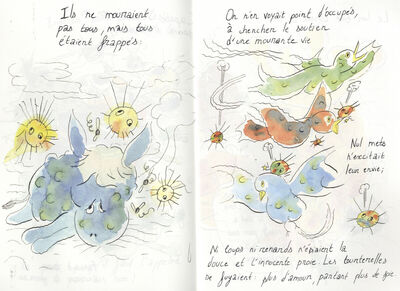 Ils ne mouraient
pas tous, mais tous
étaient frappés :
On n'en voyait point d'occupés,
à chercher le soutien
d'une mourante vie
Nul mets
n'excitait
leur envie;
Ni loups ni renards n'épiaient la
douce et l'innocente proie. Les tourterelles
se fuyaient : plus d'amour, partant plus de joie.